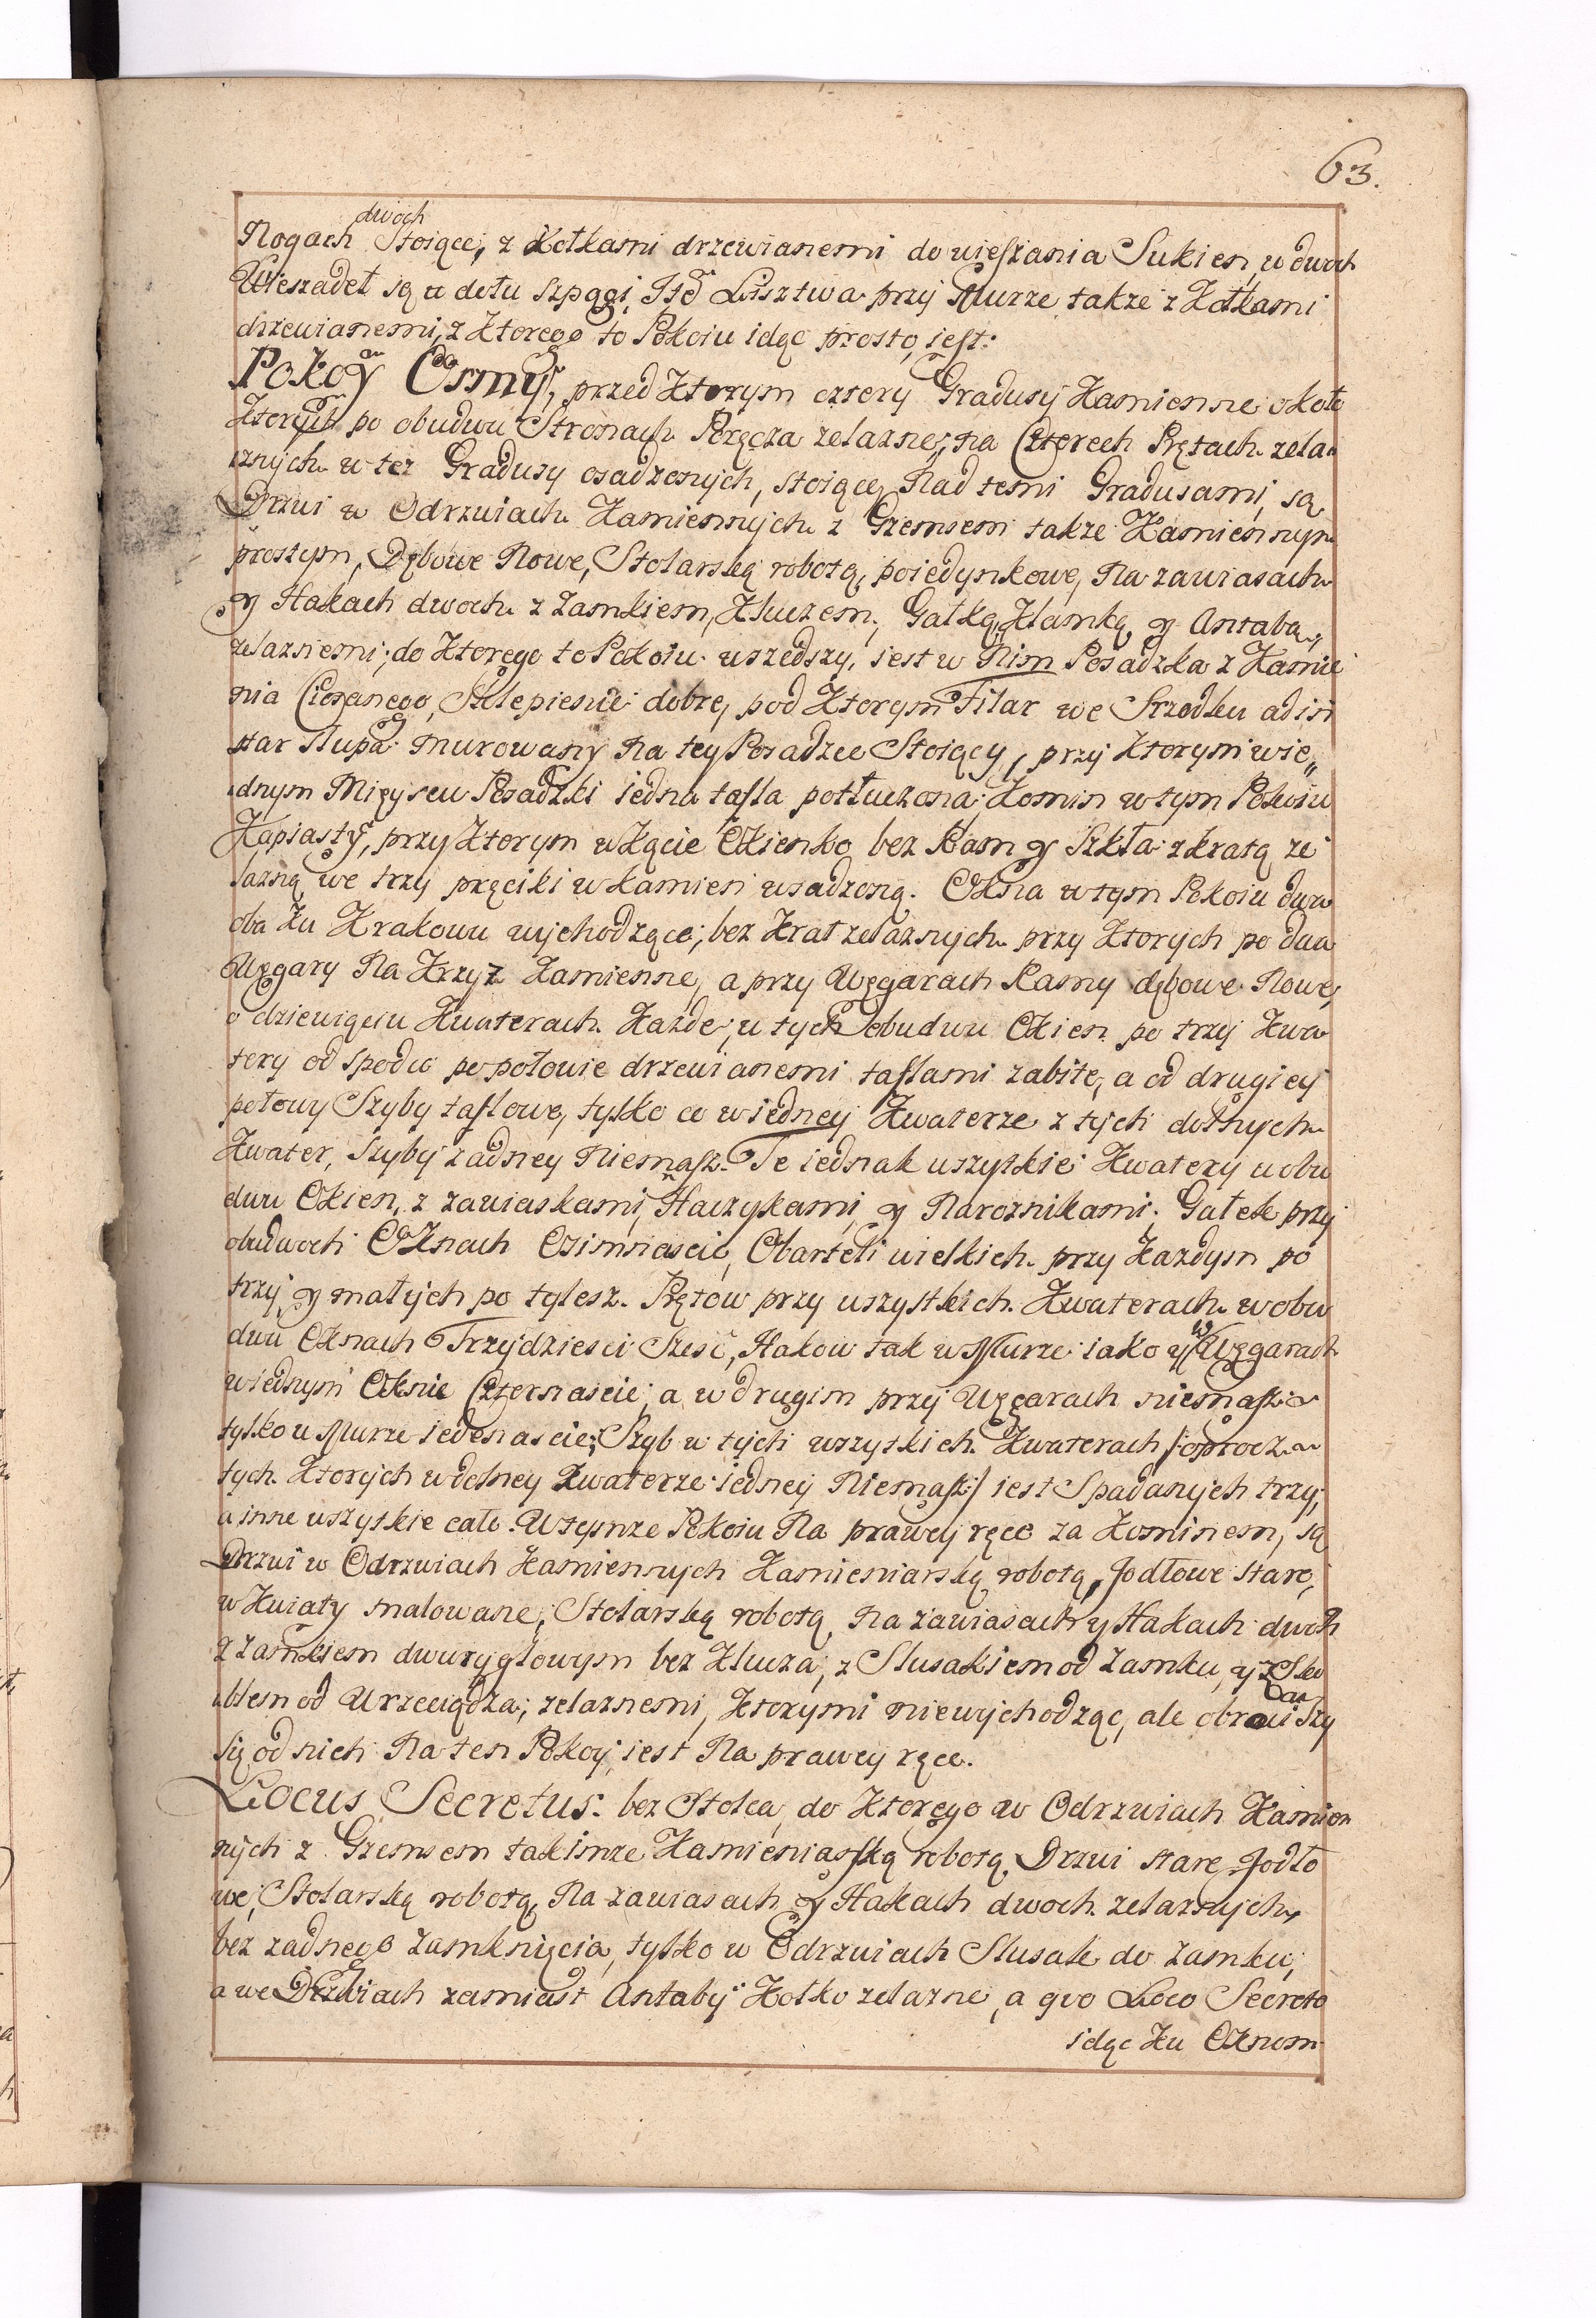 63.
dwoch
Nogach Stoiące, z Kołkami drzewianemi do wieszania Sukien, u dwoch
Wieszadeł są u dołu szpągi, Itẽ Lisztwa przy Murze także z Kołkami
drzewianemi, z Ktorego to Pokoiu idąc prosto, iest:
Pokoy Osmy, przed Ktorym cztery Gradusy Kamienne około
Ktorych po obudwu Stronach Poręcza zelazne, na Czterech Prętach zela
znych w tez Gradusy osadzonych, stoiące, Nad temi Gradusami, są
Drzwi w Odrzwiach Kamiennych z Gzemsem także Kamiennym
prostym, Dębowe Nowe, Stolarską robotą, poiedynkowe, Na zawiasach
y Hakach dwoch z Zamkiem, Kluczem, Gałką, Klamką, y Antabą,
zelaznemi; do Ktorego to Pokoiu wszedszy, iest w Nim Posadzka z Kamie
nia Ciosanego, Sklepienie dobre, pod Ktorym Filar we Srzodku ad in
star słupa murowany Na tey Posadzce Stoiący, przy Ktorym w ie„
dnym Mieyscu Posadzki iedna tafla potłuczona: Komin w tym Pokoiu
Kapiasty, przy Ktorym w Kącie Okienko bez Ram y Szkła z kratą ze
lazną we trzy pręciki w kamien wsadzoną. Okna w tym Pokoiu dwa
oba Ku Krakowu wychodzące; bez Krat zelaznych przy Ktorych po dwa
Węgary Na Krzyz Kamienne, a przy Węgarach Ramy dębowe Nowe,
o dziewięciu Kwaterach Kazde; u tych obudwu Okien po trzy Kwa
tery od spodu po połowie drzewianemi taflami zabite, a od drugiey
połowy Szyby taflowe, tylko co w iedney Kwaterze z tych dolnych
Kwater, Szyby zadney Niemasz. Te iednak wszytkie Kwatery u obu
dwu Okien, z zawiaskami, Haczykami, y Naroznikami; Gałek przy
obudwoch Oknach Osimnascie, Obarteli wielkich przy Kazdym po
trzy, y małych po tylesz. Prętow przy wszystkich Kwaterach w obu
dwu Oknach Trzydziesci Szesć, Hakow tak w Murze iako y w Węgarach
w iednym Oknie Czternascie, a w drugim przy Węgarach niemasz
tylko w Murze iedenascie; Szyb w tych wszytkich Kwaterach /: oprocz
tych Ktorych w dolney Kwaterze iedney Niemasz :/ iest Spadanych trzy,
a inne wszytkie całe. W tymze Pokoiu Na prawey ręce za Kominem, są
Drzwi w Odrzwiach Kamiennych Kamieniarską robotą, Jodłowe stare,
w Kwiaty malowane, Stolarską robotą, Na zawiasach y Hakach dwoch
z Zamkiem dwuryglowym bez Klucza, z Slusakiem od Zamku, y z Sko
blem od Wrzeciądza; zelaznemi, Ktorymi niewychodząc, ale obrociwszy
się od nich Na ten Pokoy, iest Na prawey ręce.
Locus Secretus. bez Stolca, do Ktorego w Odrzwiach Kamien
nych z Gzemsem takimze Kamieniarską robotą, Drzwi stare Jodło
we, Stolarską robotą, Na zawiasach y Hakach dwoch zelaznych,
bez zadnego Zamknięcia, tylko w Odrzwiach Slusak do Zamku,
a we Drzwiach zamiast Antaby Kołko zelazne, a quo Loco Secreto
idąc Ku Oknom